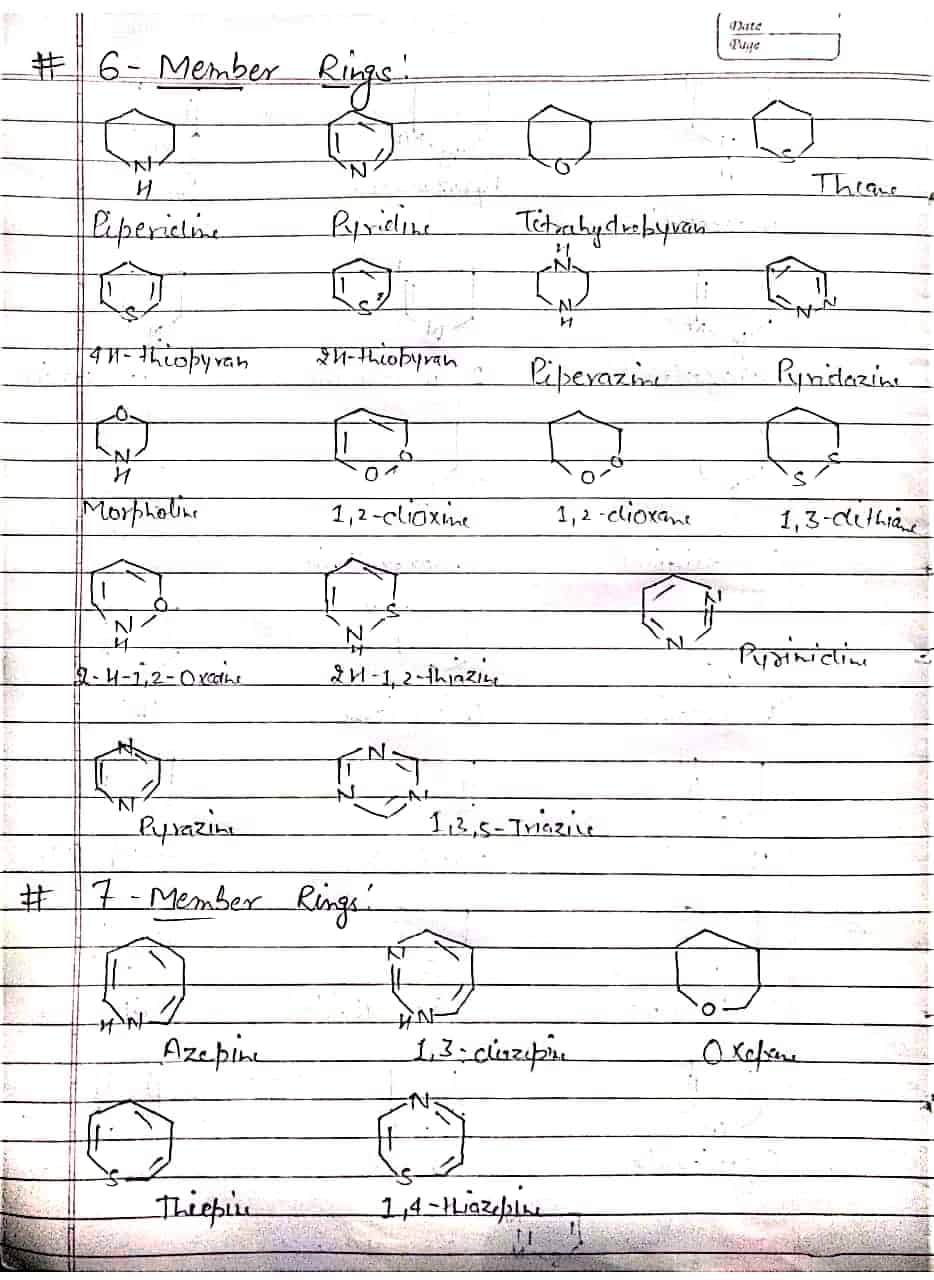 Date
Page
# 6-Member Rings:
N H N O S
Thiane
Piperidine Pyridine Tetrahydropyran
S S H N N H N N
4H-thiopyran 2H-thiopyran Piperazine Pyridazine
O N H O O O O S S
Morpholine 1,2-dioxine 1,2-dioxane 1,3-dithiane
N O H N S H N N
2-H-1,2-Oxazine 2H-1,2-thiazine Pyrimidine
N N N N N
Pyrazine 1,3,5-Triazine
# 7-Member Rings:
H N N H N O
Azepine 1,3-diazepine Oxepane
S N S
Thiepine 1,4-thiazepine